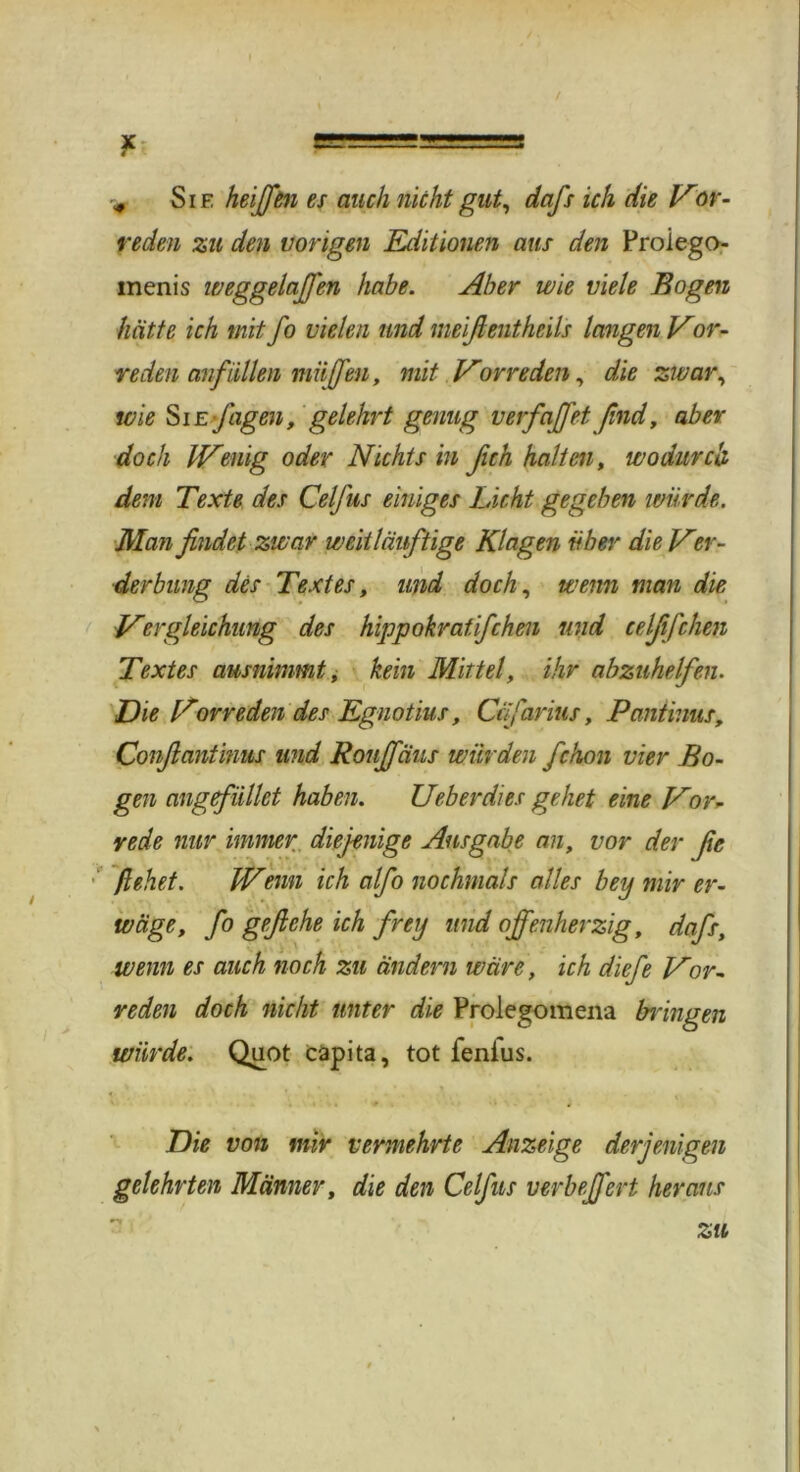 X
SIE heiſſen es auch nicht gut, daſs ich die Vor-
reden zu den vorigen Editionen aus den Prolego-
menis weggelaſſen habe. Aber wie viele Bogen
hätte ich mit ſo vielen und meiſtentheils langen Vor-
reden anfüllen müſſen, mit Vorreden, die zwar,
wie SIE ſagen, gelehrt genug verfaſſet ſind, aber
doch Wenig oder Nichts in ſich halten, wodurch
dem Texte des Celſus einiges Licht gegeben würde.
Man findet zwar weitläuftige Klagen über die Ver-
derbung des Textes, und doch, wenn man die
Vergleichung des hippokratiſchen und celſiſchen
Textes ausnimmt, kein Mittel, ihr abzuhelfen.
Die Vorreden des Egnotius, Cäſarius, Pantinus,
Conſtantinus und Rouſſäus würden ſchon vier Bo-
gen angefüllet haben. Ueberdies gehet eine Vor-
rede nur immer diejenige Ausgabe an, vor der ſie
ſtehet. Wenn ich alſo nochmals alles bey mir er-
wäge, ſo geſtehe ich frey und offenherzig, daſs,
wenn es auch noch zu ändern wäre, ich dieſe Vor-
reden doch nicht unter die Prolegomena bringen
würde. Quot capita, tot ſenſus.
Die von mir vermehrte Anzeige derjenigen
gelehrten Männer, die den Celſus verbeſſert heraus
zu